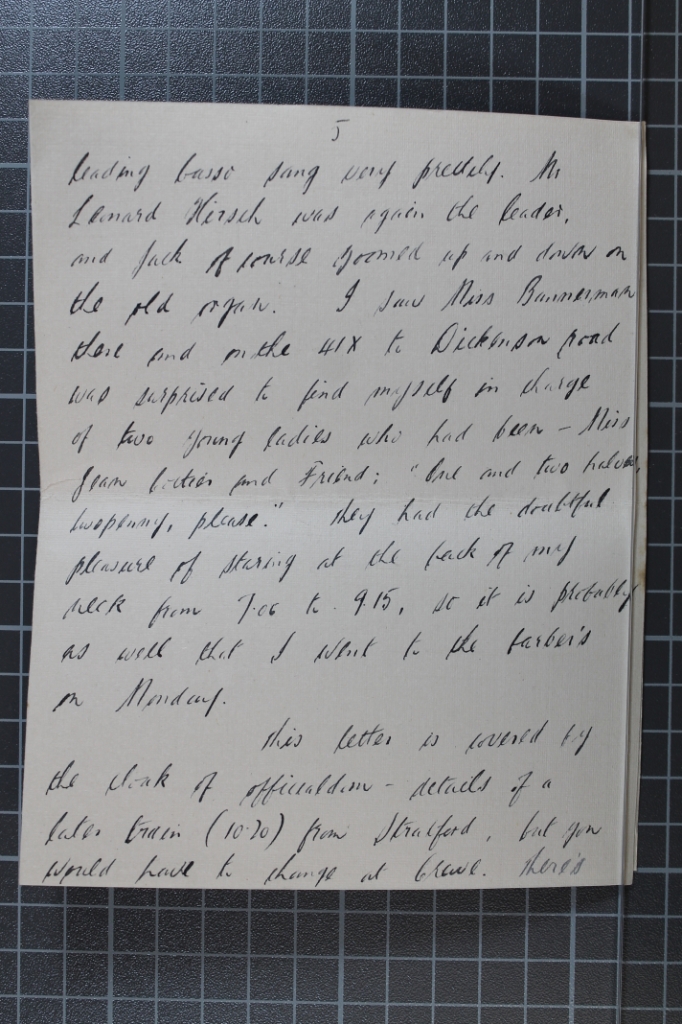 5
leading basso sang very prettily. Mr
Leonard Hirsch was again the leader,
and Jack of course zoomed up and down on
the old organ. I saw Miss Bannerman
there and on the 41X to Dickenson road
was surprised to find myself in charge
of two young ladies who had been – Miss
Jean and Friend; "One and two halves,
twopenny, please." They had the doubtful
pleasure of staring at the back of my
neck from to 9.15, so it is probably
as well that I went to the barber's
on Monday.
This letter is covered by
the cloak of officialdom – details of a
later train (10.20) from Stratford, but you
would have to change at Crewe. There's